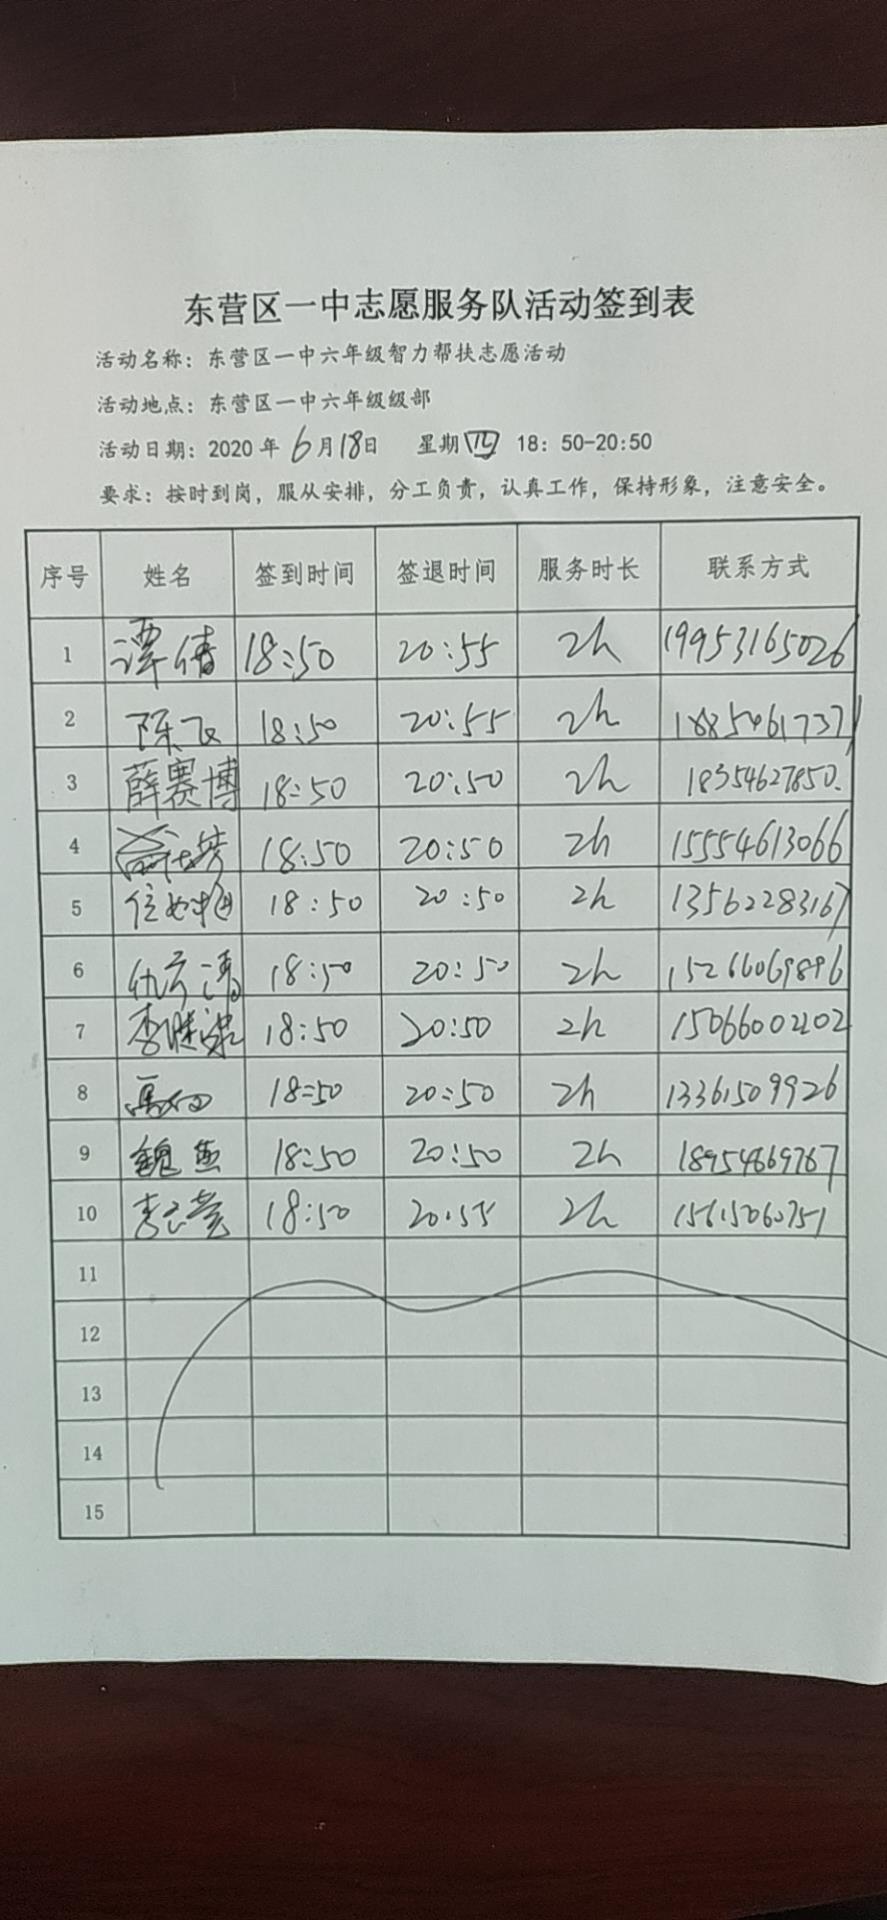 东营区一中志愿服务队活动签到表
活动名称：东营区一中六年级智力帮扶志愿活动
活动地点：东营区一中六年级级部
活动日期：2020 年 6月18日 星期四 18：50-20:50
要求：按时到岗，服从安排，分工负责，认真工作，保持形象，注意安全。
序号 姓名 签到时间 签退时间 服务时长 联系方式
1 谭倩 18:50 20:55 2h 19953165026
2 陈飞 18:50 20:55 2h 18854617371
3 薛赛博 18:50 20:50 2h 18354627850.
4 18:50 20:50 2h 15554613066
5 18:50 20:50 2h 13562283167
6 18:50 20:50 2h 15266069896
7 18:50 20:50 2h 15066002202
8 18:50 20:50 2h 13361509926
9 魏燕 18:50 20:50 2h 18954869767
10 18:50 20:55 2h 15615060751
11
12
13
14
15